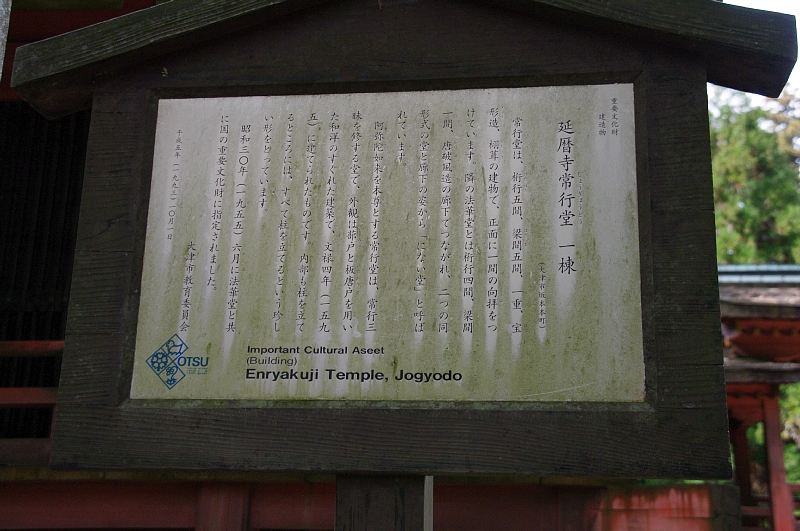 重要文化財
建造物
延暦寺常行堂 一棟
じょうぎょうどう
(大津市坂本本町)
常行堂は、桁行五間、梁間五間、一重、宝
形造、栩葺の建物で、正面に一間の向拝をつ
けています。隣の法華堂とは桁行四間、梁間
一間、唐破風造の廊下でつながれ、二つの同
形式の堂と廊下の姿から「にない堂」と呼ば
れています。
阿弥陀如来を本尊とする常行堂は、常行三
昧を修する堂で、外観は蔀戸と板唐戸を用い
た和洋のすぐれた建築で、文禄四年(一五九
五)に建てられたものです。内部も柱を立て
るところには、すべて柱を立てるという珍し
い形を均っています。
昭和三〇年(一九五五)六月に法華堂と共
に国の重要文化財に指定されました。
平成五年(一九九三)一〇月一日
大津市教育委員会
OTSU
Important Cultural Aseet
(Building)
Enryakuji Temple, Jogyodo